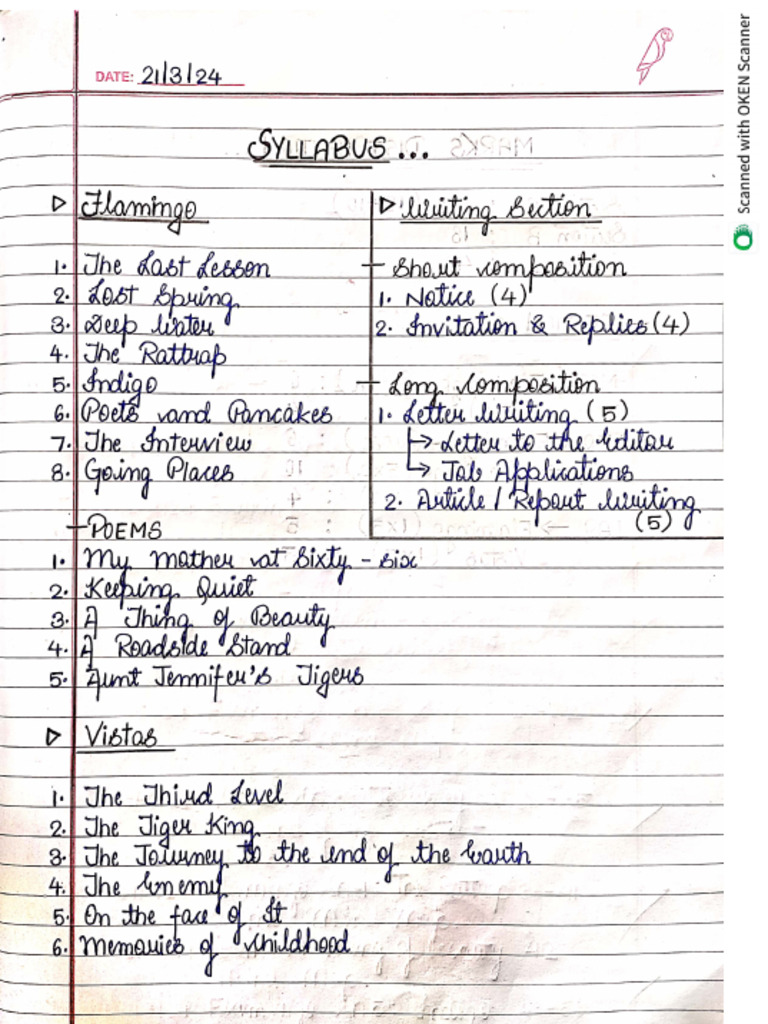 DATE: 21/3/24
SYLLABUS...
▷ Flamingo
1. The Last Lesson
2. Lost Spring
3. Deep Water
4. The Rattrap
5. Indigo
6. Poets and Pancakes
7. The Interview
8. Going Places
- POEMS
1. My Mother at Sixty - six
2. Keeping Quiet
3. A Thing of Beauty
4. A Roadside Stand
5. Aunt Jennifer's Tigers
▷ Writing Section
- Short composition
1. Notice (4)
2. Invitation & Replies (4)
- Long Composition
1. Letter Writing (5)
→ Letter to the Editor
→ Job Applications
2. Article / Report Writing
(5)
▷ Vistas
1. The Third Level
2. The Tiger King
3. The Journey to the end of the Earth
4. The Enemy
5. On the face of It
6. Memories of Childhood
Scanned with OKEN Scanner